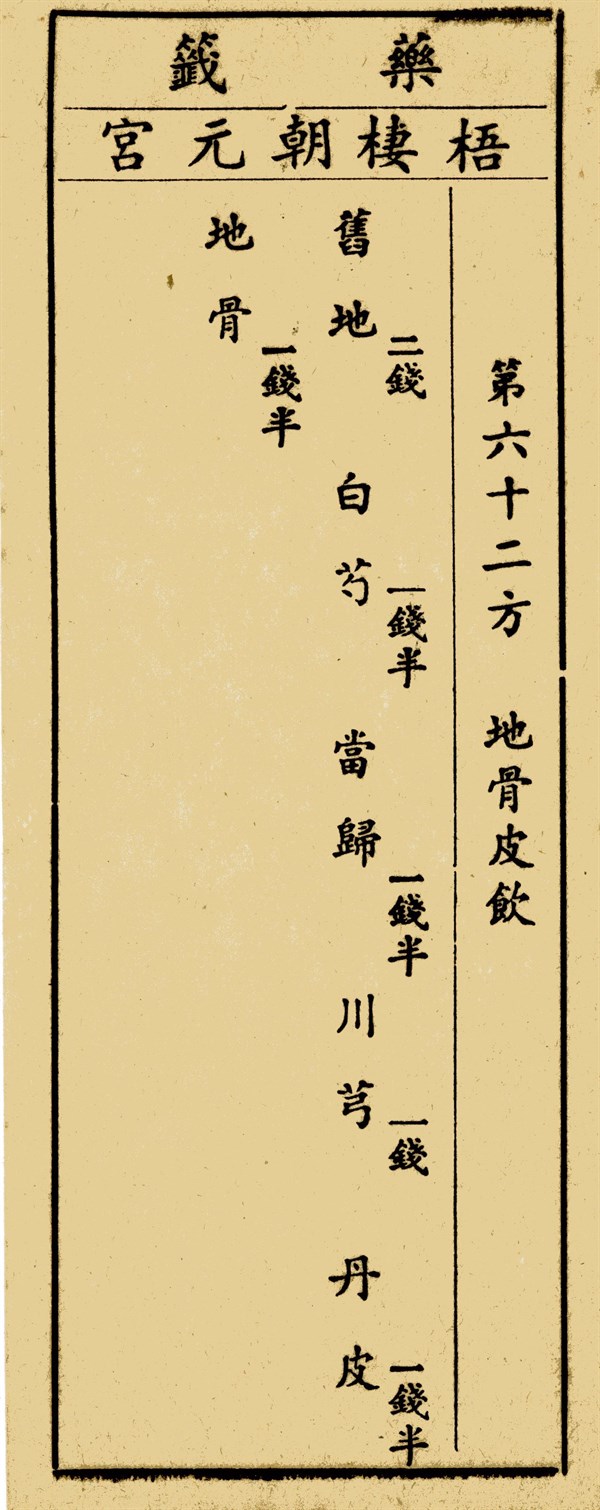 藥籤
梧棲朝元宮
第六十二方 地骨皮飲
舊地 二錢 白芍 一錢半 當歸 一錢半 川芎 一錢 丹皮 一錢半
地骨 一錢半